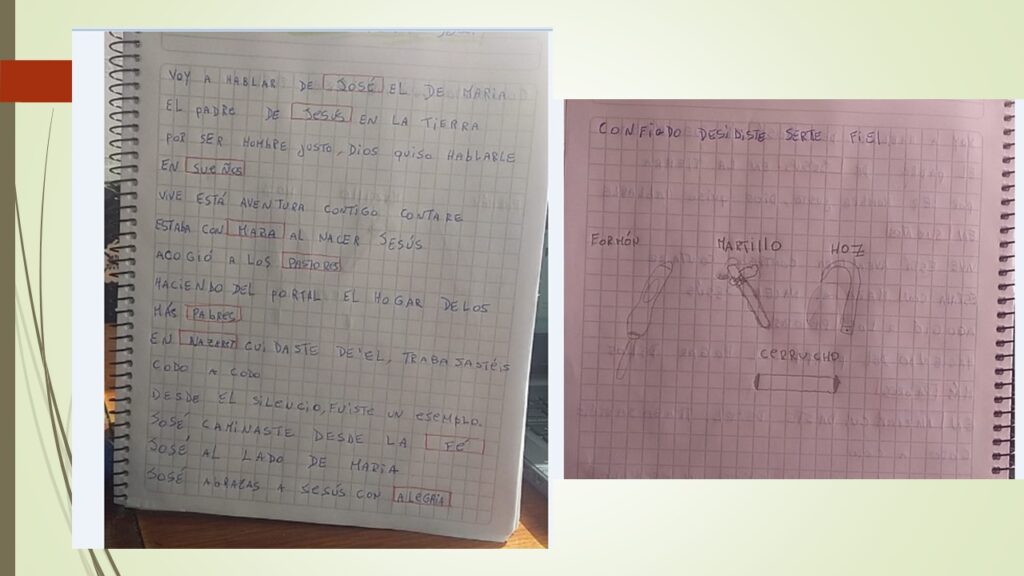 VOY A HABLAR DE JOSÉ EL DE MARIA
EL PADRE DE JESÚS EN LA TIERRA
POR SER HOMBRE JUSTO, DIOS QUISO HABLARLE
EN SUEÑOS
VIVE ESTÁ AVENTURA CONTIGO CONTARE
ESTABA CON MARA AL NACER JESÚS
ACOGIÓ A LOS PASTORES
HACIENDO DEL PORTAL EL HOGAR DE LOS
MÁS PABRES
EN NAZARET CUIDASTE DE'EL, TRABAJASTÉIS
CODO A CODO
DESDE EL SILENCIO, FUISTE UN ESEMPLO.
JOSÉ CAMINASTE DESDE LA FÉ
JOSÉ AL LADO DE MARIA
JOSÉ ABRAZAS A JESÚS CON ALEGRIA
CONFIADO DESIDISTE SERTE FIEL
FORMÓN MARTILLO HOZ
CERRUCHO